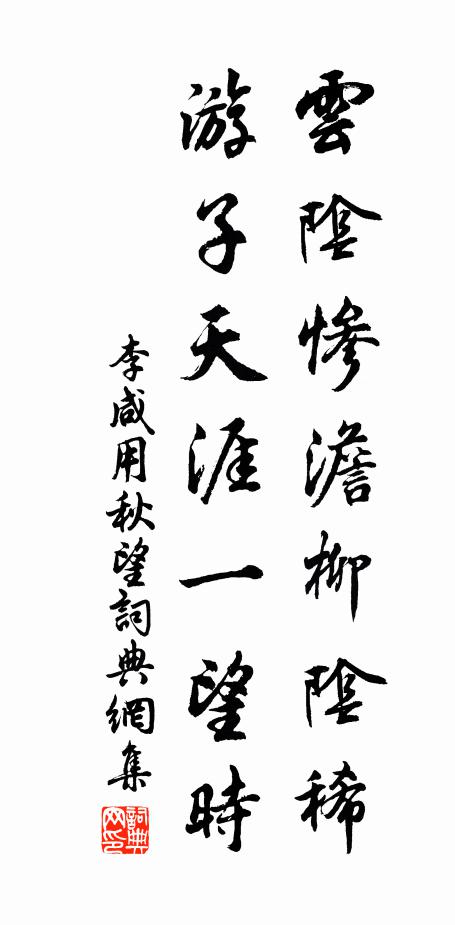 雲陰慘澹柳陰稀
游子天涯一望時
李咸用秋望詞典網集
詞典网印